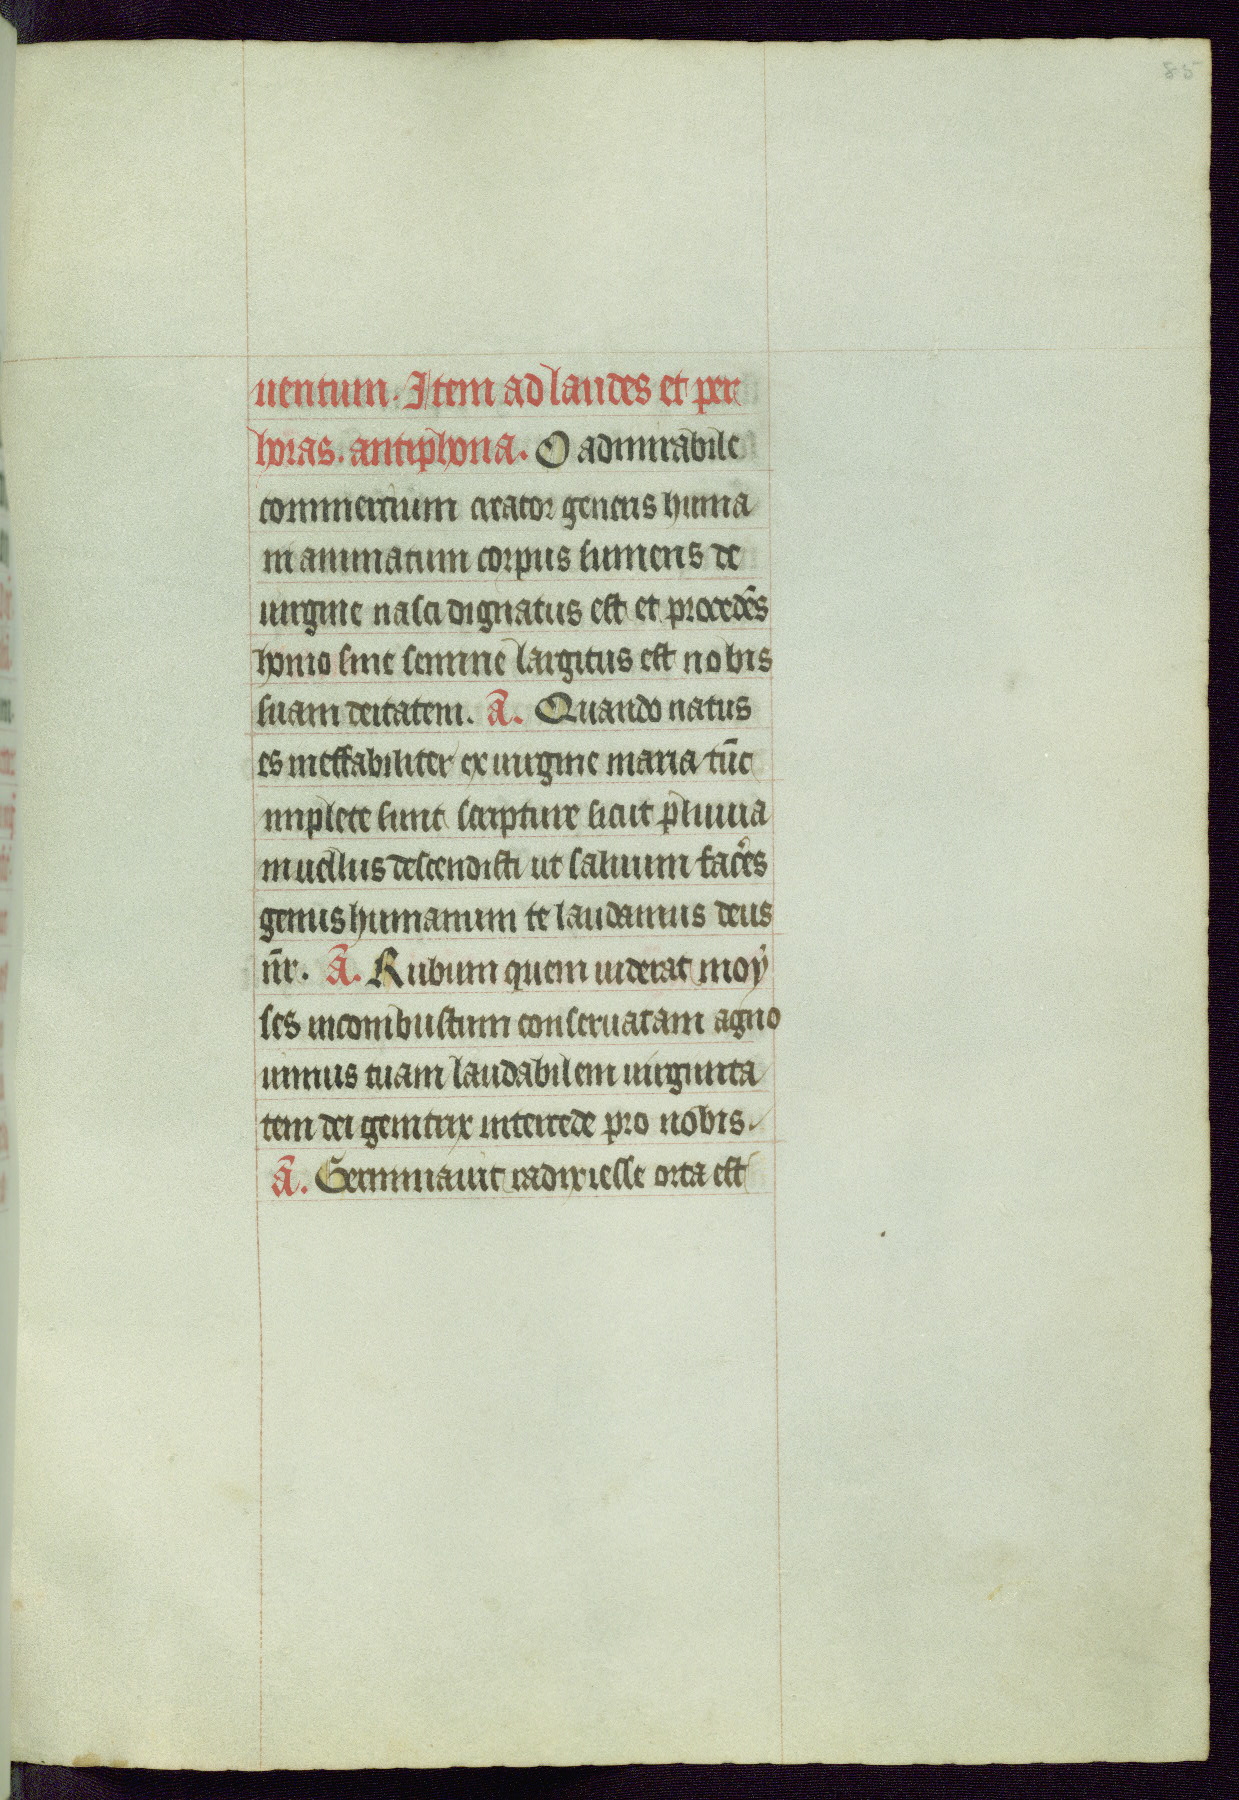 85
uentum. Item ad laudes et per
horas. antiphona. O admirabile
commercium creator generis huma
ni animatum corpus sumens de
uirgine nasci dignatus est et procedēs
homo sine semine largitus est nobis
suam deitatem. ā. Quando natus
es ineffabiliter ex uirgine maria tūc
implete sunt scripture sicut pluuia
in uellus descendisti ut saluum facēs
genus humanum te laudamus deus
nr̄. ā. Rubum quem uiderat moy
ses incombustum conseruatam agno
uimus tuam laudabilem uirginita
tem dei genitrix intercede pro nobis.
ā. Germinauit radix iesse orta est